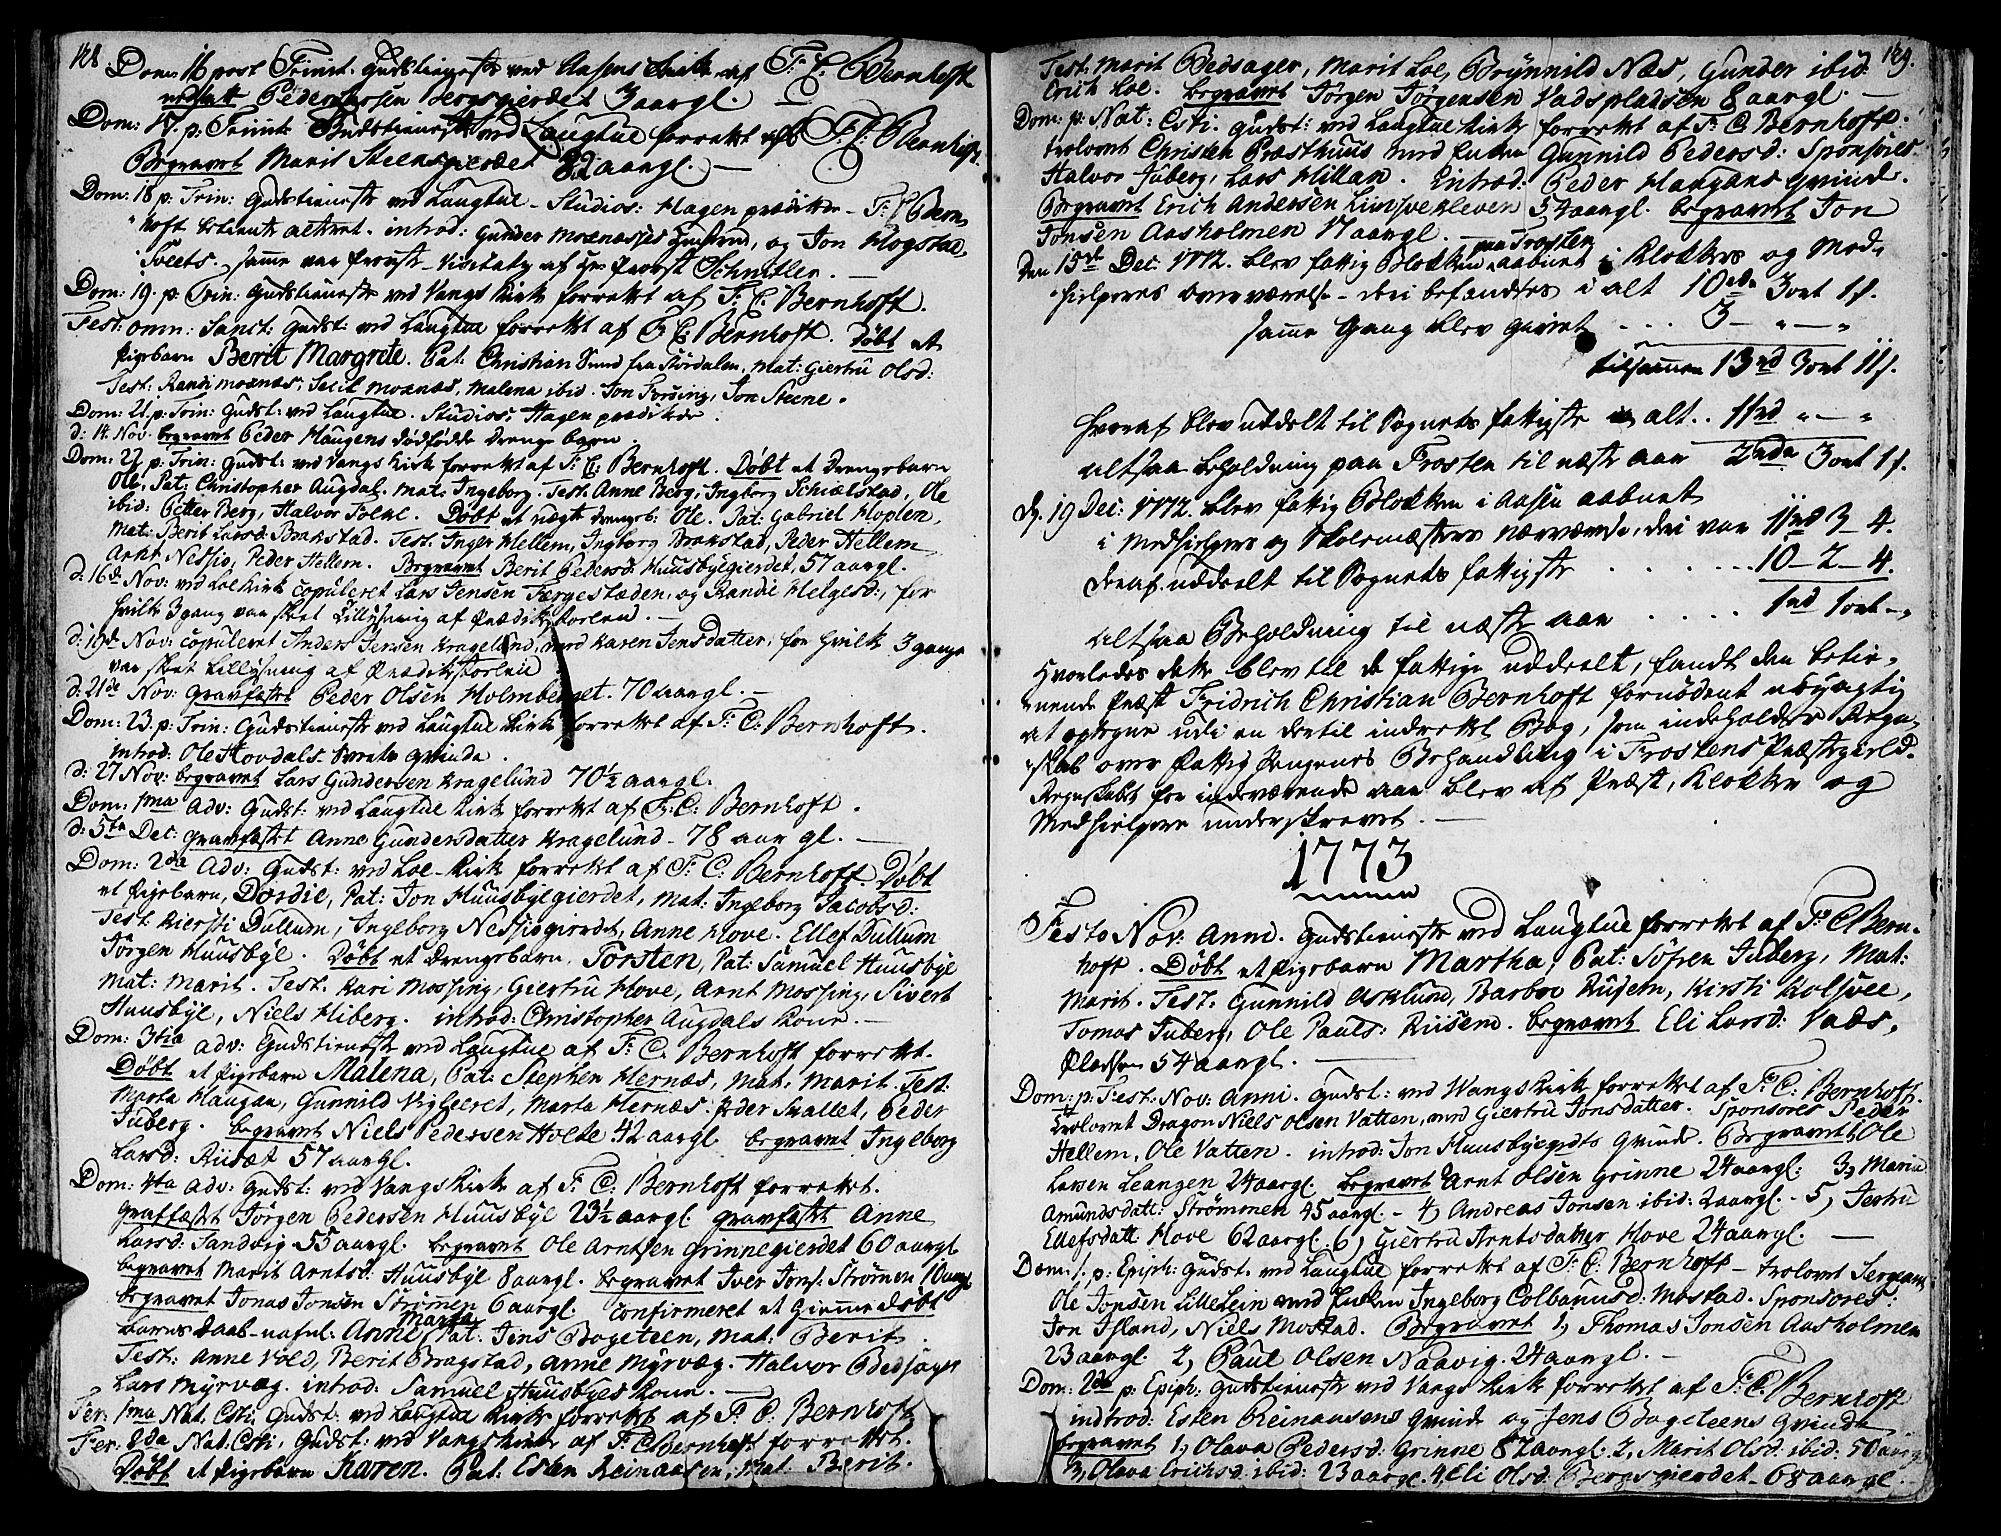 128.
Dom: 16 post Trinit: Gudstieneste ved Aasens Kirke af F: C: Bernhoft
nedsatt Peder Larssen Bergsgierdet 3 aargl.
Dom: 17. p: Trinit: Gudstieneste ved Laugtue forrettet af F: C: Bernhoft.
Begravet Marit Steensgierdet 82 aargl. —
Dom: 18 p: Trin: Gudstieneste ved Laugtue – Studios: Hagen prædikede – F: C Bern-
hoft betiente alteret. introd: Gunder Moxnæsses Hustrue, og Jon Hogstad
Tveets. samme var Provste-Visitatz af Hr Provst Schnitler. —
Dom: 19. p: Trin: Gudstieneste ved Vangs Kirke forrettet af F: C: Bernhoft.
Fest: omn: Sanct: Gudst: ved Laugtue forrettet af F: C: Bernhoft. Døbt et
Pigebarn Berit Margrete. Pat: Christian Sund fra Størdalen, Mat: Giertru Olsd:
Test: Randi Moxnæs, Sicil Moxnæs, Malena ibid. Jon Forsing, Jon Steene.
Dom: 21. p: Trin: Gudst: ved Laugtue. Studios: Hagen prædikede.
d: 14. Nov. begravet Peder Haugens dødfødde drenge barn.
Dom: 22 p: Trin: Gudst: ved Vangs Kirke forrettet af F: C: Bernhoft. Døbt et Drengebarn
Ole, Pat: Christopher Augdal. Mat: Ingeborg. Test: Anne Berg, Ingborg Schielstad, Ole
ibid: Petter Berg, Halvor Folke. Døbt et uægte drengeb: Ole. Pat: Gabriel Hoplen,
Mat: Berit Larsd: Brakstad. Test: Inger Hellem, Ingborg Brakstad, Peder Hellem,
Arnt Nessie, Peder Hellem. Begravet Berit Pedersd: Huusbyegierdet, 57 aargl.
d: 16de Nov: ved Loe Kirke copuleret Lars Jensen Færgestæden, og Randie Helgesd:, for
hvilke 3 gang var skeet Tillysning af Prædikestolen. —
d: 19de Nov: copuleret Anders Jensen Kragelund, med Karen Jensdatter, for hvilke 3 gange
var skeet tillysning af Prædikestolen
d: 21de Nov: gravfæstet Peder Olsen Holmberget. 70 aargl. —
Dom: 23. p: Trin: Gudstieneste ved Laugtue Kirke forrettet af F: C: Bernhoft.
introd: Ole Hovdals Svrete Qvinde.
d: 27 Nov: begravet Lars Gundersen Kragelund 70½ aargl.
Dom: 1ma Adv: Gudst: ved Laugtue Kirke forrettet af F: C: Bernhoft.
d: 5te Dec: gravfæstet Anne Gundersdatter Kragelund – 78 aar gl. —
Dom: 2da Adv: Gudst: ved Loe-Kirke forrettet af F: C: Bernhoft. Døbt
et Pigebarn, Dordie, Pat: Jon Huusbyegierdet, Mat: Ingeborg Jacobsd:
Test: Kiersti Dullum, Ingeborg Nessiegierdet, Anne Hove. Ellef Dullum
Jørgen Huusbye. Døbt et Drengebarn, Torsten, Pat: Samuel Huusbye
Mat: Marit. Test: Kari Mossing, Giertru Hove, Arnt Mossing, Sivert
Huusbye, Niels Hiberg. introd: Christopher Augdals Kone. —
Dom: 3tia Adv: Gudstieneste ved Laugtue af F: C: Bernhoft forrettet.
Døbt et Pigebarn Malena, Pat: Stephen Hernæs, Mat: Marit. Test:
Marta Haugan, Gunnild Vigseeret, Marta Hernæs. Peder Suallet, Peder
Juberg. begravet Niels Pedersen Holte 42 aargl. begravet Ingeborg
Larsd: Riisæt 57 aargl.
Dom: 4ta Adv: Gudst: ved Vangs Kirke af F: C: Bernhoft forrettet.
gravfæstet Jørgen Pedersen Huusbye 23½ aargl. gravfæstet Anne
Larsd: Sandvig 55 aargl. begravet Ole Arntsen Grinnegierdet 60 aargl
begravet Marit Arntsd: Huusbye 8 aargl. begravet Iver Jons: Strømen 10 aargl
begravet Jonas Jonsen Strømen 6 aargl. confirmeret et Giemmedøbt
barns Daab-nafnl: Anne Marta, Pat: Jens Bogeteen, Mat: Berit.
Test: Anne Vold, Berit Bragstad, Anne Myrvæg. Halvor Bedsager
Lars Myrvæg. introd: Samuel Huusbyes Kone. —
Fer: 1ma Nat: Csti. Gudst: ved Laugtue Kirke forrettet af F: C: Bernhoft
Fer: 2da Nat: Csti. Gudst: ved Vangs Kirke af F: C Bernhoft forrettet.
Døbt et Pigebarn Karen. Pat: Esten Reinaasen, Mat: Berit.
129.
Test: Marit Bedsager, Marit Loe, Brynnild Næs, Gunder ibid
Erich Loe. begravet Jørgen Jørgensen Vadspladsen 8 aargl. —
Dom: p: Nat: Csti. Gudst: ved Laugtue Kirke forrettet af F: C Bernhoft.
trolovet Christen Præsthuus med Enken Gunnild Pedersd: Sponsores
Halvor Juberg, Lars Hillan. Introd: Peder Haugans Qvinde.
Begravet Erich Andersen Lunsveeleven 54 aargl. begravet Jon
Jonsen Aasholmen 17 aargl. —
Den 15de Dec: 1772. blev fattig Blokken paa Frosten aabnet i Klokkers og Med-
hielperes overværelse – deri befandtes i alt 10 rd 3 ort 1 s.
samme Gang blev givet . . . . 3 – " — "
tilsammen 13 rd 3 ort 11 s.
hvoraf blev uddelt til Sognets fattigste i alt . . 11 rd " — "
altsaa beholdning paa Frosten til næste aar 2 rd 3 ort 1 s.
d. 19 Dec: 1772. blev fattig Blokken i Aasen aabnet
i Medhielpers og Skolemæsters nærværende, deri var 11 rd 3 – 4.
deraf uddeelt til Sognets fattigste . . . . . . . 10 – 2 – 4.
altsaa Beholdning til næste aar . . . . . 1 rd 1 ort – "
Hvorledes dette blev til de fattige uddeelt, fandt den betie-
nende Præst Fridrich Christian Bernhoft fornødent nøyagtig
at optegne udi en dertil indrettet Bog, som indeholder Regn-
skab over fattig Pengenes Behandling i Frostens Præstegield.
Regnskabet for indeværende aar blev af Præst, Klokker og
Medhielpere underskrevet. —
1773
Festo Nov: Anni. Gudstieneste ved Laugtue forrettet af F: C Bern-
hoft. Døbt et Pigebarn Martha, Pat: Søfren Juberg, Mat:
Marit. Test: Gunnild Asklund, Barbro Rusem, Kirsti Kolsvee,
Tomas Juberg, Ole Pauls: Riisem. begravet Eli Larsd: Vads,
Pladsen 54 aargl. —
Dom: p: Fest: Nov: Anni. Gudst: ved Vangs Kirke forrettet af F: C: Bernhoft.
trolovet Dragon Niels Olsen Vatten, med Giertru Jonsdatter. Sponsores Peder
Hellem, Ole Vatten. introd: Jon Huusbyegrdts Qvinde. Begravet 1, Ole
Larsen Leangen 24 aargl. begravet 2, Arnt Olsen Grinne 24 aargl: 3, Maria
Amundsdatt: Strømmen 45 aargl – 4, Andreas Jonsen ibid: 2 aargl – 5, Jertru
Ellefsdatt Hove 62 aargl. 6, Giertru Arntsdatter Hove 24 aargl. —
Dom: 1. p: Epiph: Gudst. ved Laugtue forrettet af F: C: Bernhoft – trolovet Sergeant
Ole Jonsen Lillelein med Enken Ingeborg Colbanusd: Mostad. Sponsores:
Jon Island, Niels Mostad. Begravet 1, Thomas Jonsen Aasholmen
23 aargl. 2, Paul Olsen Naavig. 24 aargl. —
Dom: 2da p: Epiph: Gudstieneste ved Vangs Kirke forrettet af F: C: Bernhoft
indtrod: Esten Reinaasens Qvinde og Jens Bogeteens Qvinde
begravet 1, Olava Pedersd: Grinne 87 aargl. 2, Marit Olsd: ibid: 50 aargl
3, Olava Erichsd: ibid: 23 aargl. 4, Eli Olsd: Bergsgierdet – 68 aargl.